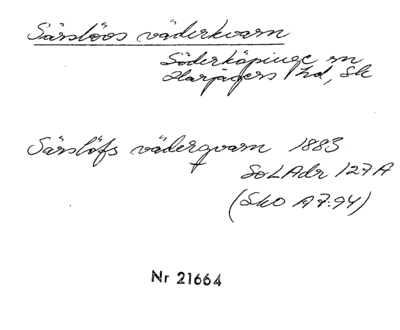 Särslöos väderkvarn
Söderköpinge sn
Harjagers hd, Sk
Särslöfs väderqvarn 1883
SoLAdr 127A
(SkO A7:94)
Nr 21664